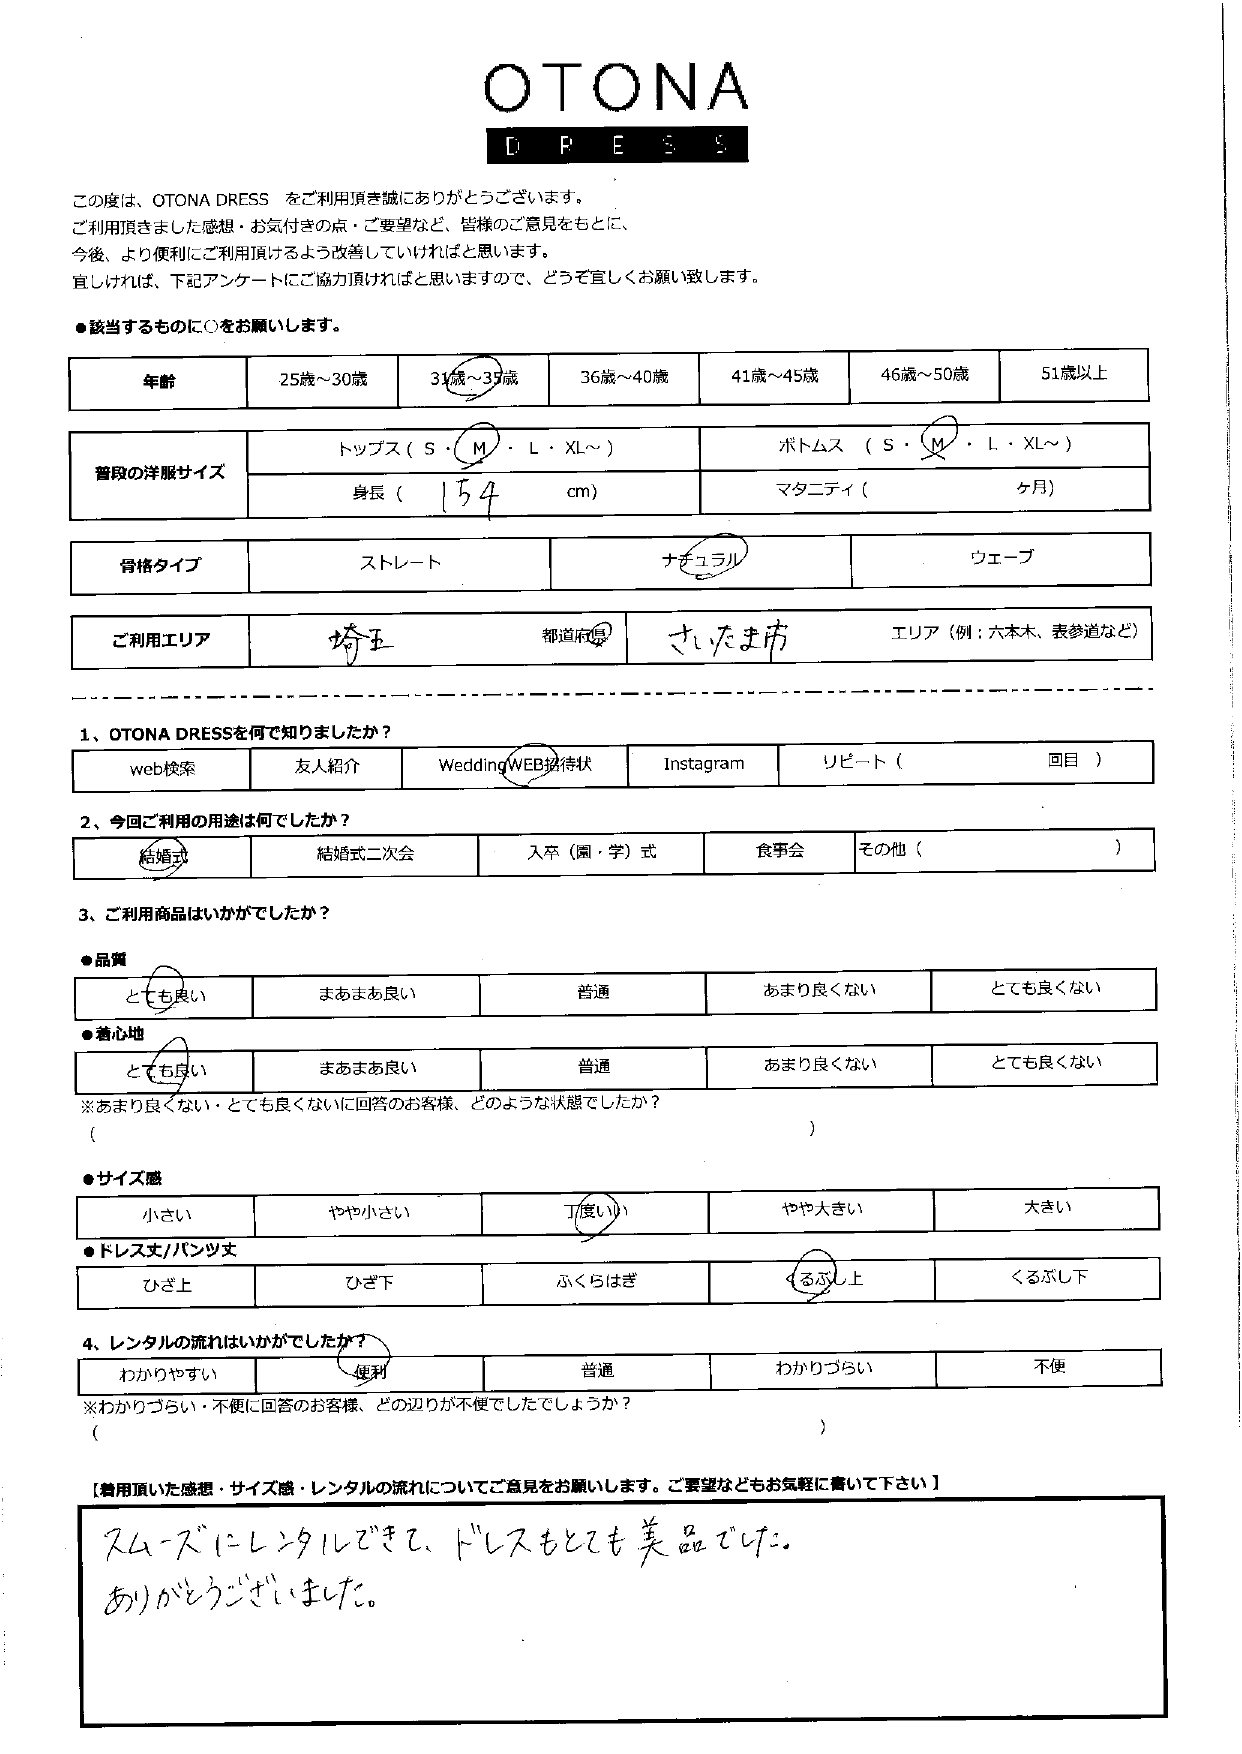 OTONA
DRESS
この度は、OTONA DRESS をご利用頂き誠にありがとうございます。
ご利用頂きました感想・お気付きの点・ご要望など、皆様のご意見をもとに、
今後、より便利にご利用頂けるよう改善していければと思います。
宜しければ、下記アンケートにご協力頂ければと思いますので、どうぞ宜しくお願い致します。
●該当するものに○をお願いします。
年齢 25歳～30歳 31歳～35歳 36歳～40歳 41歳～45歳 46歳～50歳 51歳以上
普段の洋服サイズ トップス ( S ・ M ・ L ・ XL～ ) ボトムス ( S ・ M ・ L ・ XL～ )
身長 ( 154 cm) マタニティ ( ケ月)
骨格タイプ ストレート ナチュラル ウェーブ
ご利用エリア 埼玉 都道府県 さいたま市 エリア（例：六本木、表参道など）
1、OTONA DRESSを何で知りましたか？
web検索 友人紹介 WeddingWEB招待状 Instagram リピート（ 回目 ）
2、今回ご利用の用途は何でしたか？
結婚式 結婚式二次会 入卒（園・学）式 食事会 その他（ ）
3、ご利用商品はいかがでしたか？
●品質
とても良い まあまあ良い 普通 あまり良くない とても良くない
●着心地
とても良い まあまあ良い 普通 あまり良くない とても良くない
※あまり良くない・とても良くないに回答のお客様、どのような状態でしたか？
( )
●サイズ感
小さい やや小さい 丁度いい やや大きい 大きい
●ドレス丈/パンツ丈
ひざ上 ひざ下 ふくらはぎ くるぶし上 くるぶし下
4、レンタルの流れはいかがでしたか？
わかりやすい 便利 普通 わかりづらい 不便
※わかりづらい・不便に回答のお客様、どの辺りが不便でしたでしょうか？
( )
【着用頂いた感想・サイズ感・レンタルの流れについてご意見をお願いします。ご要望などもお気軽に書いて下さい】
スムーズにレンタルできて、ドレスもとても美品でした。
ありがとうございました。